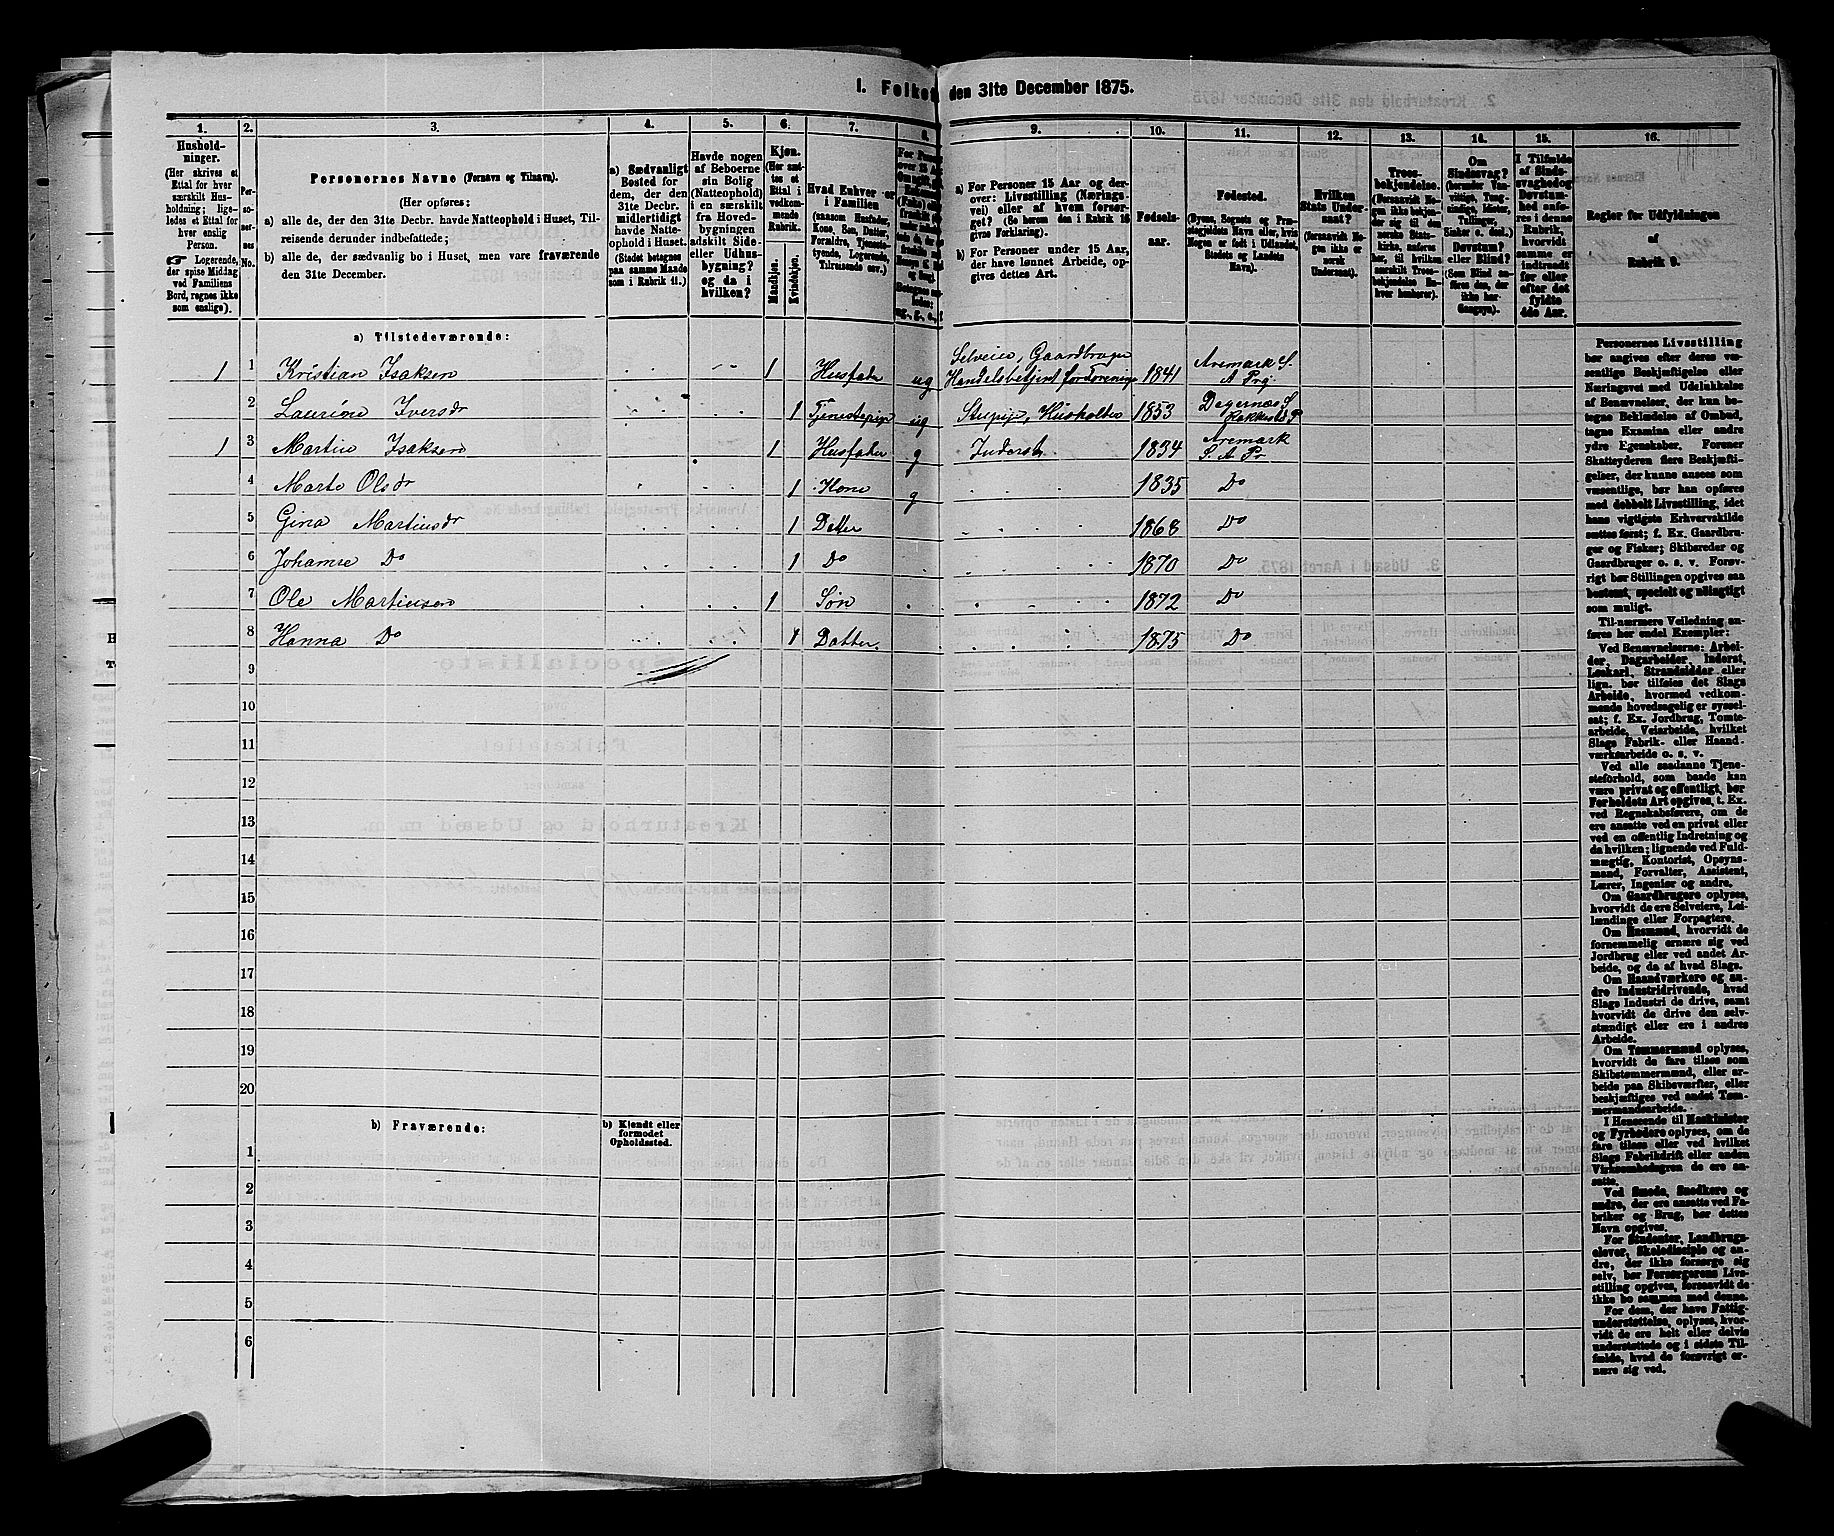 1. Folke den 31te December 1875.
1. 2. 3. 4. 5. 6. 7. 8. 9. 10. 11. 12. 13. 14. 15. 16.
Hushold-
ninger.
(Her skrives et
Ettal for hver
særskilt Hus-
holdning; lige-
ledes et Ettal for
hver enslig
Person.
☛ Logerende,
der spise Middag
ved Familiens
Bord, regnes ikke
som enslige).
Per-
so-
ner-
nes
No.
Personernes Navne (Fornavn og Tilnavn).
(Her opføres:
a) alle de, der den 31te Decbr. havde Natteophold i Huset, Til-
reisende derunder indbefattede;
b) alle de, der sædvanlig bo i Huset, men vare fraværende
den 31te December.
a) Sædvanligt
Bosted for
dem, der den
31te Decbr.
midlertidigt
havde Natte-
ophold i Huset.
(Stedet betegnes
paa samme Maade
som i Rubrik 11.)
Havde nogen
af Beboerne
sin Bolig
(Natteophold)
i en særskilt
fra Hoved-
bygningen
adskilt Side-
eller Udhus-
bygning?
og da i
hvilken?
Kjøn.
(Her sæt-
tes et
Ettal i
vedkom-
mende
Rubrik.
Mandkjøn.
Kvindekjøn.
Hvad Enhver er
i Familien
(saasom Husfader,
Kone, Søn, Datter,
Forældre, Tjeneste-
tyende, Logerende,
Tilreisende osv.)
a) For Personer 15 Aar og der-
over: Livsstilling (Nærings-
vei) eller af hvem forsør-
get? (Se herom den i Rubrik 16
givne Forklaring).
b) For Personer under 15 Aar,
der have lønnet Arbeide, op-
gives dettes Art.
Fødsels-
aar.
Fødested.
(Byens, Sognets og Præ-
stegjeldets Navn eller, hvis
Nogen er født i Udlandet,
Stedets og Landets
Navn).
Hvilken
Stats Under-
saat?
(forsaavidt No-
gen ikke er
norsk
Undersaat).
Troes-
bekjendelse.
(Forsaavidt No-
gen ikke bekjen-
der sig til den
norske Stats-
kirke, anføres
her, til hvilken
særskilt Troes-
bekjendelse En-
hver henhører).
Om
Sindssvag?
Døvstum?
eller Blind?
I Tilfælde
af Sinds-
svaghed og
Døvstum-
hed anfø-
res i denne
Rubrik,
hvorvidt
samme er
indtraadt
før eller
efter det
fyldte
4de Aar.
Regler for Udfyldningen
af
Rubrik 9.
a) Tilstedeværende:
1 1 Kristian Isaksen 1 Husfader ug Selveier, Gaardbruger Handelsbetjent 1841 Aremark S. A Prg
2 Laurine Iversdr 1 Tjenestepige ug Husholder 1853 Degernæs S Rakkestd P
1 3 Martin Isaksen 1 Husfader g Inderst 1834 Aremark S. A Pr
4 Marte Olsdr 1 Kone g 1835 Do
5 Gina Martinsdr 1 Datter 1868 Do
6 Johanne Do 1 Do 1870 Do
7 Ole Martinsen 1 Søn 1872 Do
8 Hanna Do 1 Datter. 1875 Do
9
10
11
12
13
14
15
16
17
18
19
20
b) Fraværende:
b) Kjendt eller
formodet
Opholdssted.
1
2
3
4
5
6
Personernes Livsstilling
bør angives efter deres væ-
sentlige Beskjæftigelse eller
Næringsvei med Udelukkelse
af Benævnelser, der kun be-
tegne Beklædelse af Ombud,
tagne Examina eller andre
ydre Egenskaber. Forener
Skatteyderen flere Beskjæfti-
gelser, der kunne ansees som
væsentlige, bør han opføres
med dobbelt Livsstilling, idet
hans vigtigste Erhvervskilde
sættes først; f. Ex. Gaardbru-
ger og Fisker; Skibsreder og
Gaardbruger o. s. v. Forøv-
rigt bør Stillingen opgives saa
bestemt, specielt og nøiagtigt
som muligt.
Til nærmere Veiledning an-
føres her endel Exempler:
Ved Benævnelserne: Arbei-
der, Dagarbeider, Inderst,
Løskarl, Strandsidder eller
lign. bør tilføies det Slags
Arbeide, hvormed vedkom-
mende hovedsagelig er syssel-
sat; f. Ex. Jordbrug, Tomte-
arbeide, Veiarbeide, hvilket
Slags Fabrik- eller Haand-
værksarbeide o. s. v.
Ved alle saadanne Tjene-
steforhold, som baade kan
være privat og offentligt, bør
Forholdets Art opgives, t. Ex.
ved Regnskabsførere, om de
ere ansatte ved en privat eller
ved en offentlig Indretning og
da hvilken; lignende ved Fuld-
mægtig, Kontorist, Opsyns-
mand, Forvalter, Assistent,
Lærer, Ingeniør og andre.
Om Gaardbrugere oplyses,
hvorvidt de ere Selveiere, Lei-
lændinge eller Forpagtere.
Om Husmænd, hvorvidt de
fornemmelig ernære sig ved
Jordbrug eller ved andet Ar-
beide, og da af hvad Slags.
Om Haandværkere og an-
dre Industridrivende, hvad
Slags Industri de drive, samt
hvorvidt de drive den selv-
stændigt eller ere i andres
Arbeide.
Om Tømmermænd oplyses,
hvorvidt de fare tilsøs som
Skibstømmermænd, eller ar-
beide paa Skibsværfter, eller
beskjæftiges ved andet Tøm-
mermandsarbeide.
I Henseende til Maskinister
og Fyrbødere oplyses, om de
fare tilsøs eller ved hvilket
Slags Fabrikdrift eller anden
Virksomhedsgren de ere an-
satte.
Ved Smede, Snedkere og
andre, der ere ansatte ved Fa-
briker og Brug, bør dettes
Navn opgives.
For Studenter, Landbrugs-
elever, Skoledisciple og an-
dre, der ikke forsørge sig
selv, bør Forsørgerens Livs-
stilling opgives, forsaavidt de
ikke bo sammen med denne.
For dem, der have Fattig-
understøttelse, oplyses, hvor-
vidt de ere helt eller delvis
understøttede og i sidste Til-
fælde, hvad de forøvrigt er-
nære sig ved.